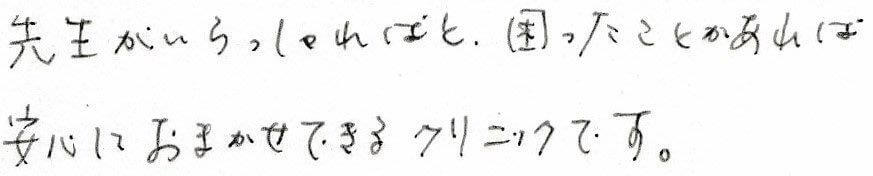 先生がいらっしゃればと、困ったことがあれば
安心におまかせできるクリニックです。